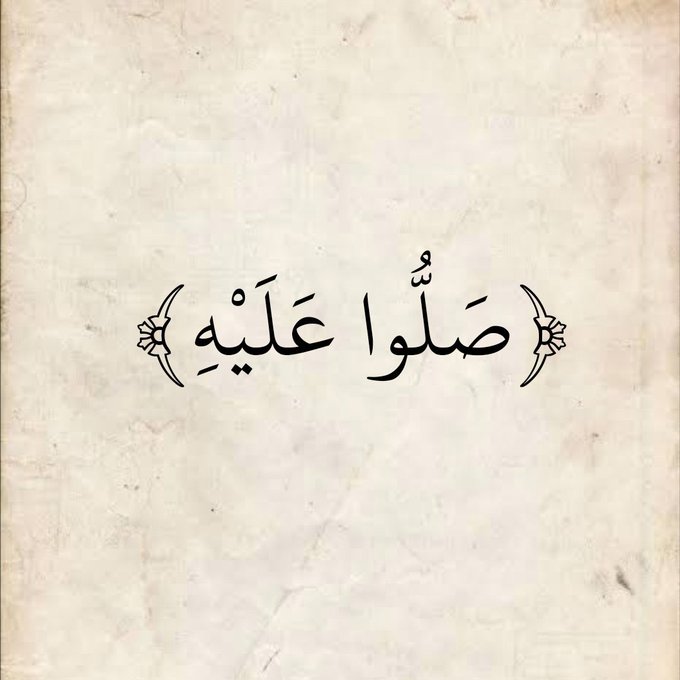 ﴿صَلُّوا عَلَيْهِ﴾